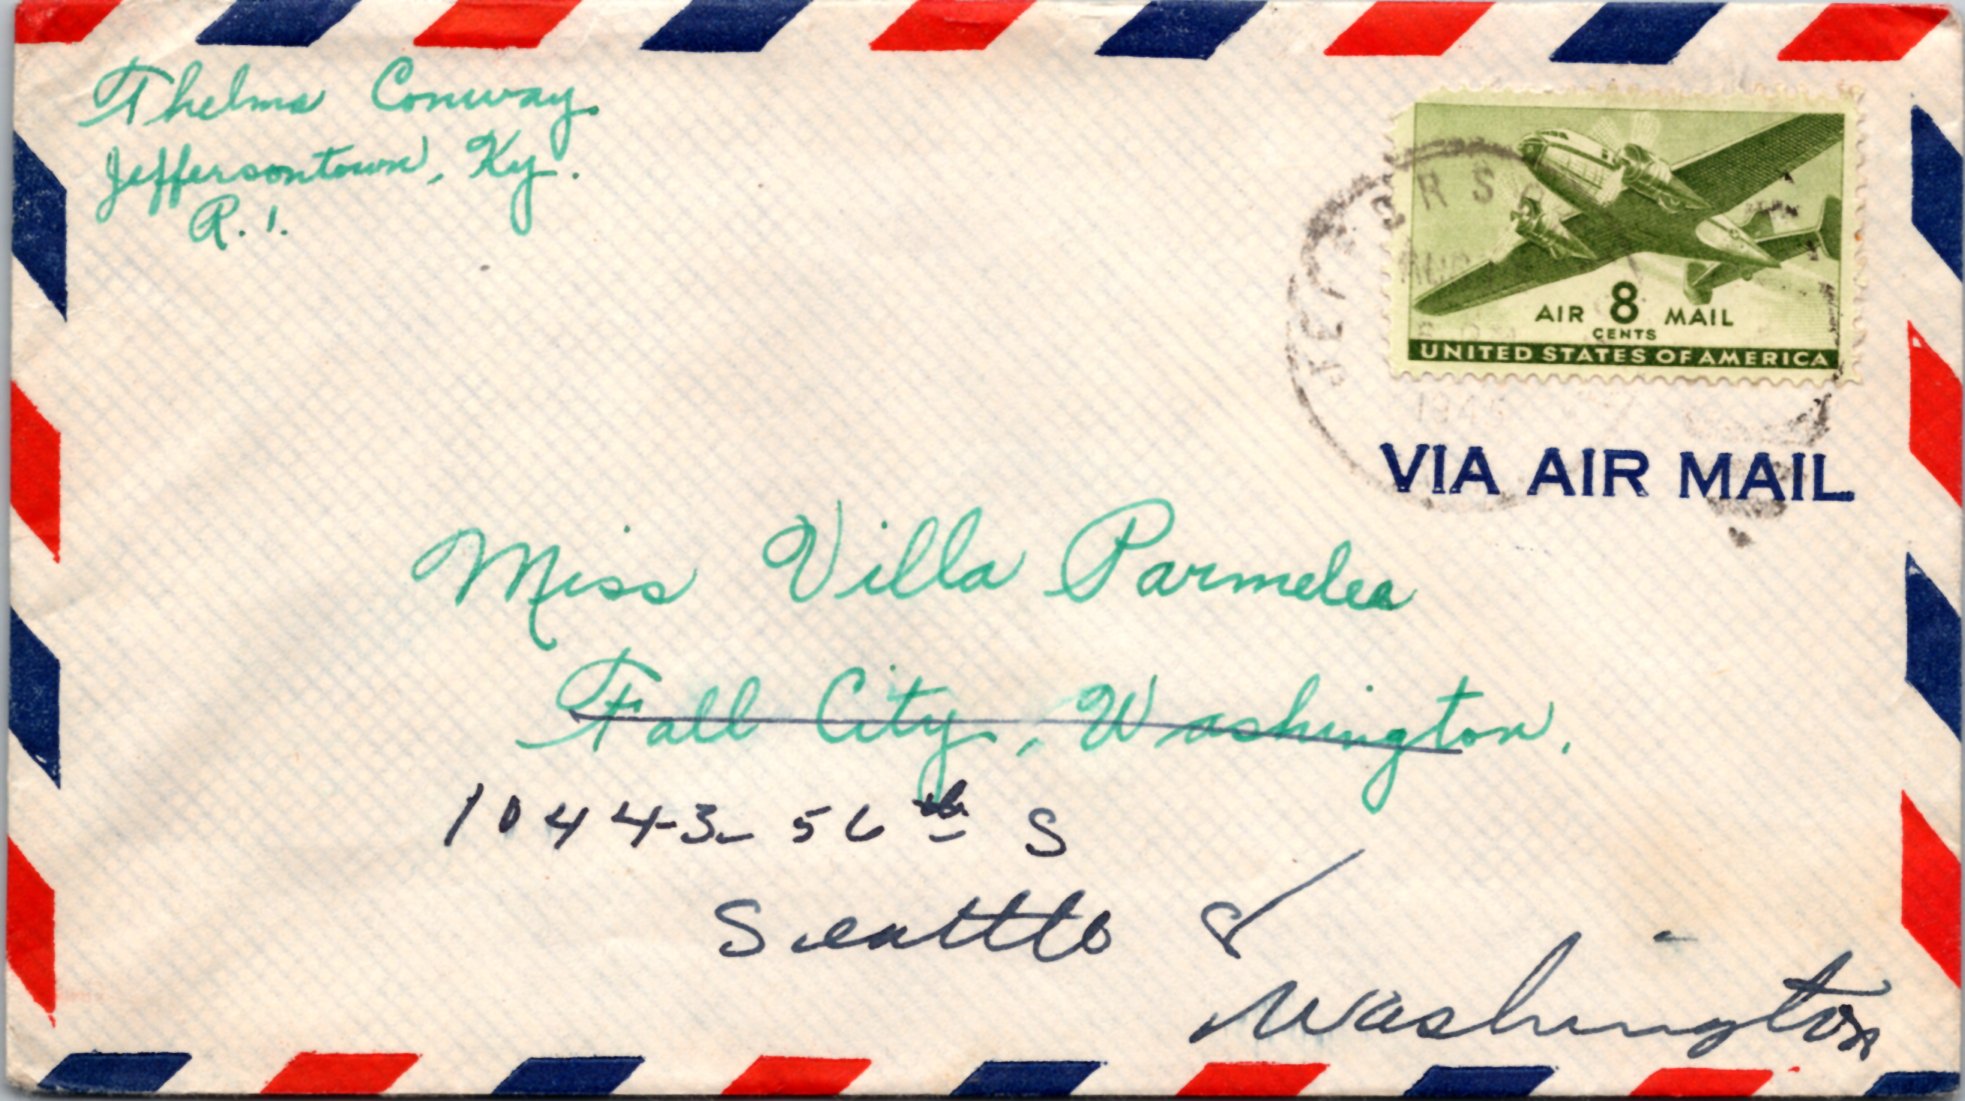 Thelma Conway
Jeffersontown, Ky.
R. 1.
AIR 8 MAIL
CENTS
UNITED STATES OF AMERICA
VIA AIR MAIL
Miss Villa Parmelee
Fall City, Washington.
10443- 56th S
Seattle
Washington